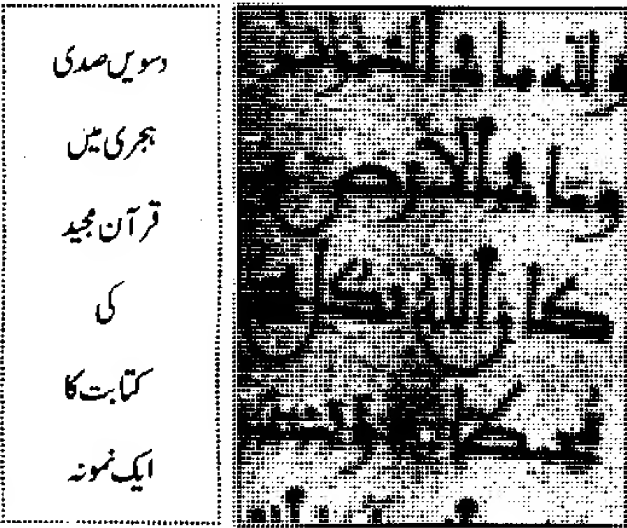 دسویں صدی
ہجری میں
قرآن مجید
کی
کتابت کا
ایک نمونہ
ولله ما فى السموت
وما فى الارض و
كان الله بكل